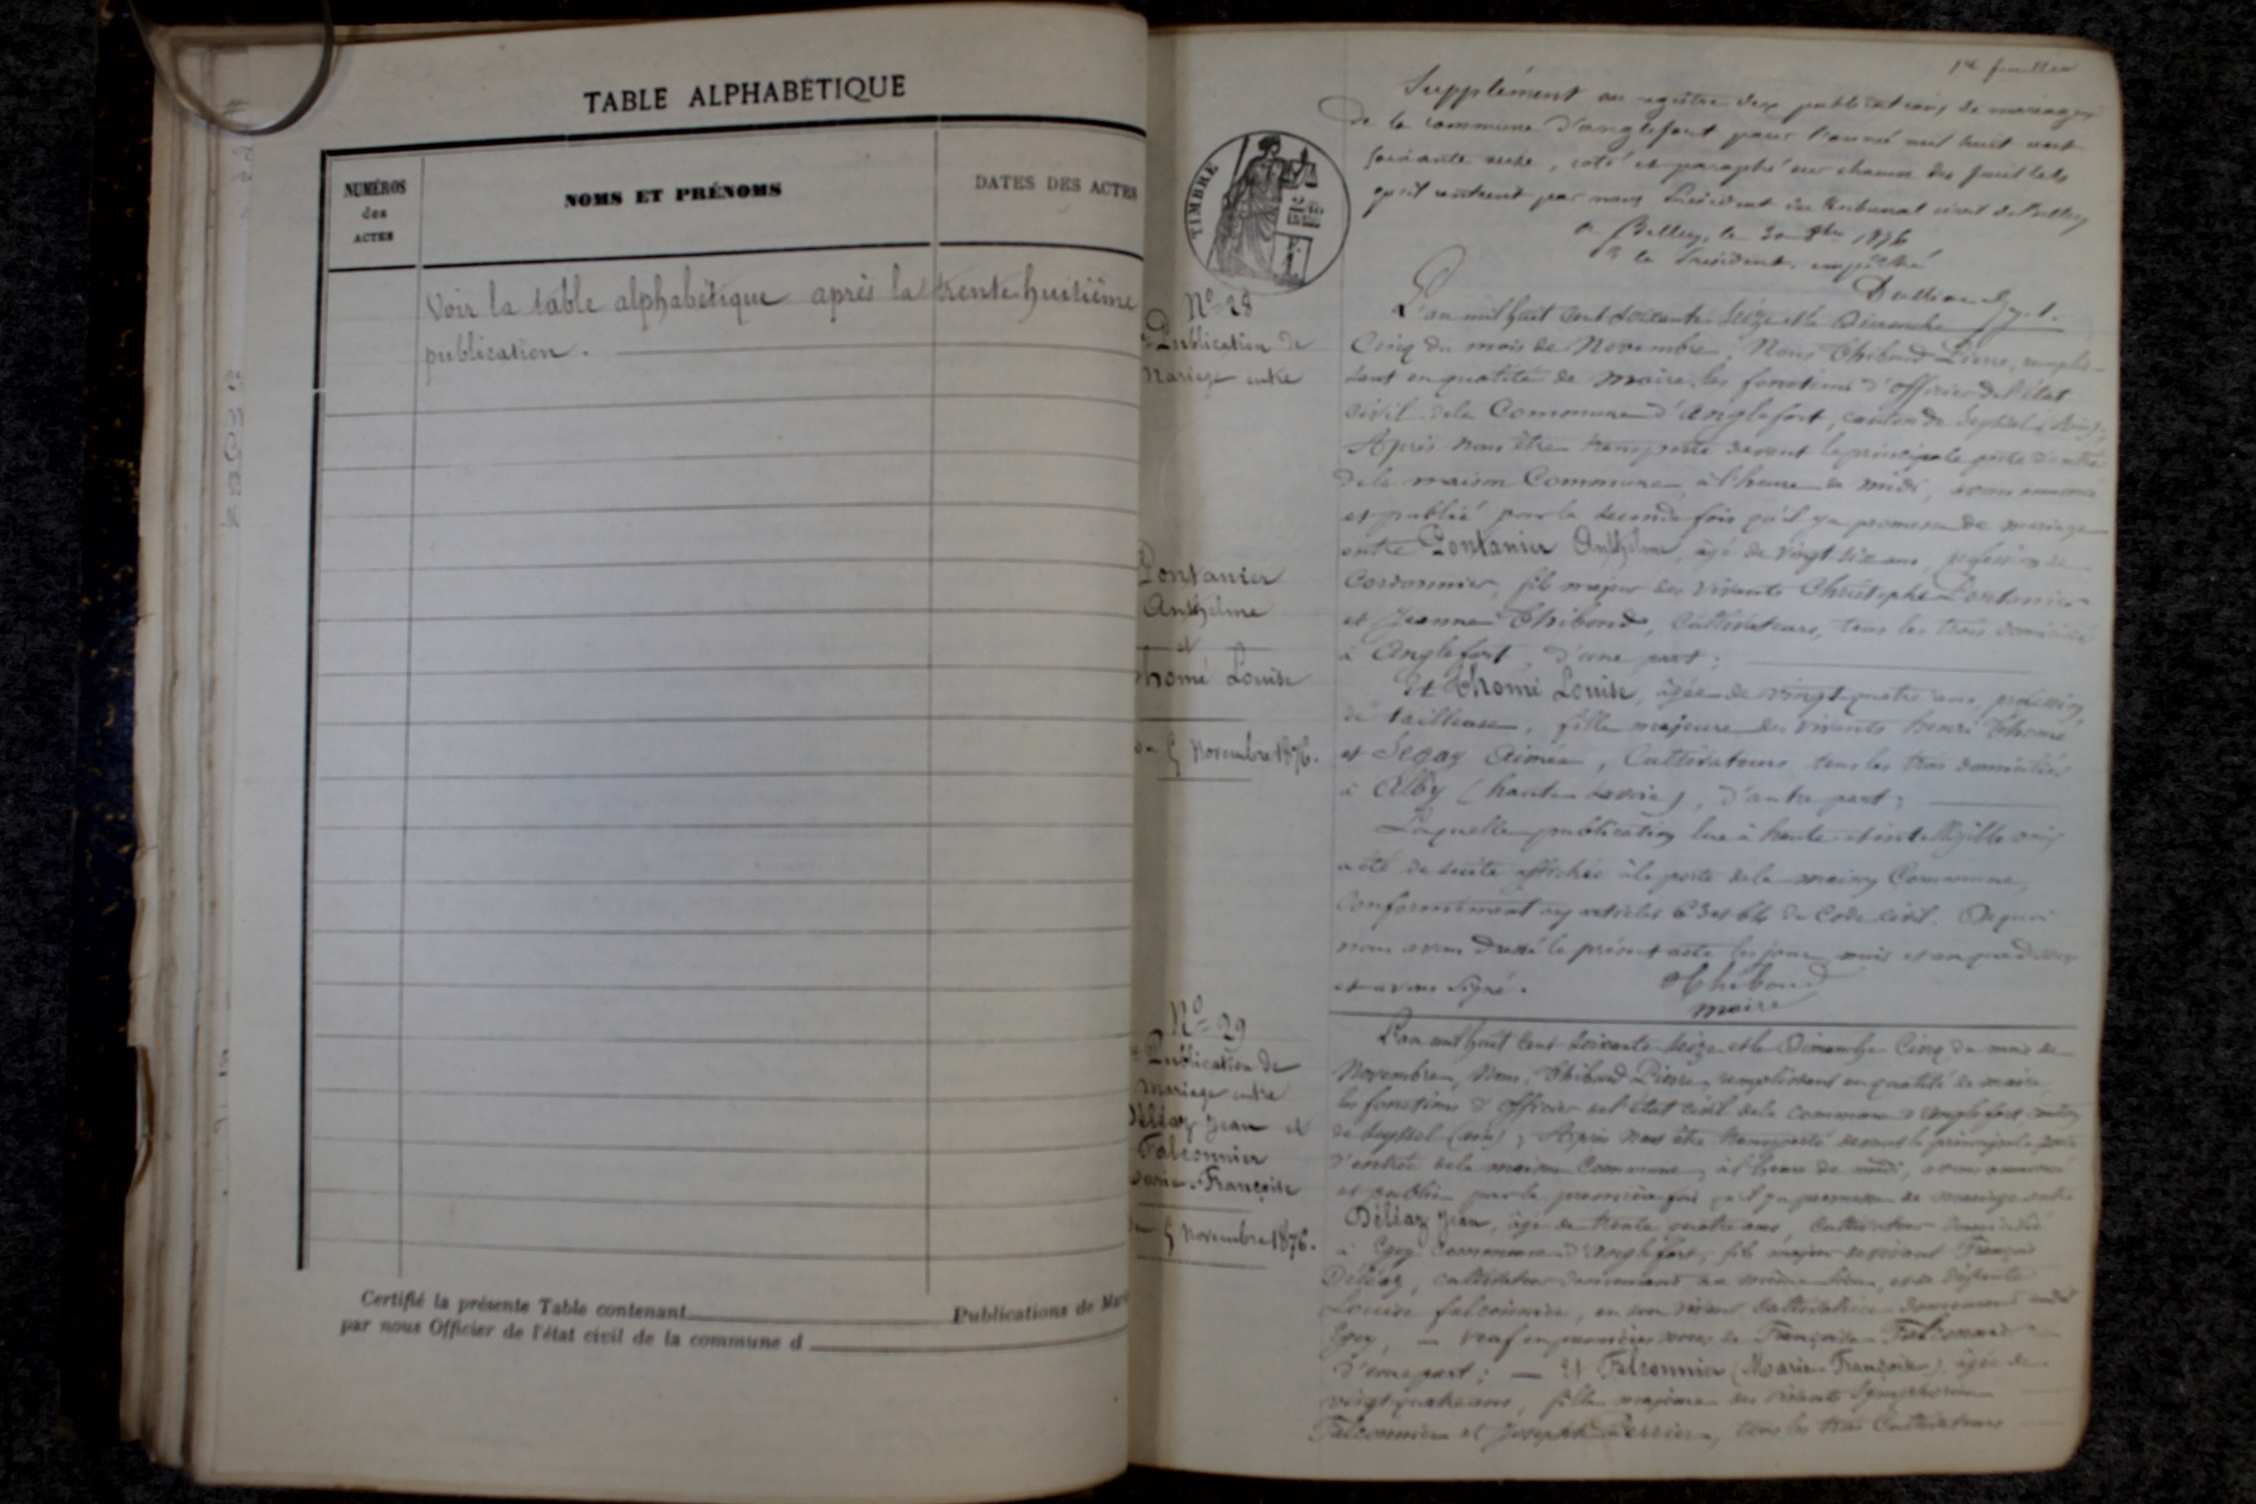 TABLE ALPHABÉTIQUE
NUMÉROS
des
ACTES
NOMS ET PRÉNOMS
DATES DES ACTES
Voir la table alphabétique après la trente huitième
publication.
Certifié la présente Table contenant
Publications de Mar
par nous Officier de l'état civil de la commune d
1er feuillet
Supplément au registre des publications de mariages
de la commune d'anglefort pour l'année mil huit cent
soixante seize, coté et paraphé sur chacun des feuillets
qu'il contient par nous Président du tribunal civil de Belley
à Belley, le 30 8bre 1876
le Président empêché
TIMBRE
No 28
Publication de
Mariage entre
Pontanier
Anthelme
et
homé Louise
5 Novembre 1876.
L'an mil huit cent soixante seize et le Dimanche
Cinq du mois de Novembre, Nous Thiboud Pierre, remplis-
sant en qualité de Maire les fonctions d'officier de l'état
civil de la Commune d'Anglefort, canton de Seyssel
Après nous être transporté devant la principale porte d'entrée
de la maison Commune, à l'heure de midi, avons annoncé
et publié pour la seconde fois qu'il y a promesse de mariage
entre Pontanier Anthelme, âgé de vingt six ans, profession de
Cordonnier, fils majeur des vivants Christophe Pontanier
et Jeanne Thiboud, Cultivateurs, tous les trois domiciliés
à Anglefort, d'une part;
Et Thomé Louise, âgée de vingt quatre ans, profession
de tailleuse, fille majeure des vivants henri Thomé
et Aimée, Cultivateurs tous les trois domiciliés
à Alby (haute savoie), d'autre part;
Laquelle publication lue à haute et intelligible voix
a été de suite affichée à la porte de la maison Commune,
Conformément aux articles 63 et 64 du Code Civil. De quoi
nous avons dressé le présent acte les jour, mois et an que dessus
et avons signé.
Thiboud
maire
No 29
Publication de
Mariage entre
Déléaz Jean et
Falconnier
Marie-Françoise
5 Novembre 1876.
L'an mil huit cent soixante seize et le Dimanche Cinq du mois de
Novembre, Nous, Thiboud Pierre, remplissant en qualité de maire,
les fonctions d'officier de l'état civil de la commune d'anglefort canton
de Seyssel (ain); Après nous être transporté devant la principale porte
d'entrée de la maison Commune, à l'heure de midi, avons annoncé
et publié pour la première fois qu'il y a promesse de mariage entre
Déléaz Jean, âgé de trente quatre ans, Cultivateur domicilié
à commune d'Anglefort, fils majeur du vivant François
Déléaz, cultivateur demeurant au même lieu, et de défunte
Louise falconnier, en son vivant cultivatrice demeurant
veuf en premières noces de Françoise Falconnier
d'une part; — Et Falconnier (Marie-Françoise) âgée de
vingt quatre ans, fille majeure des vivants Symphorien
Falconnier et Josephte tous les trois Cultivateurs